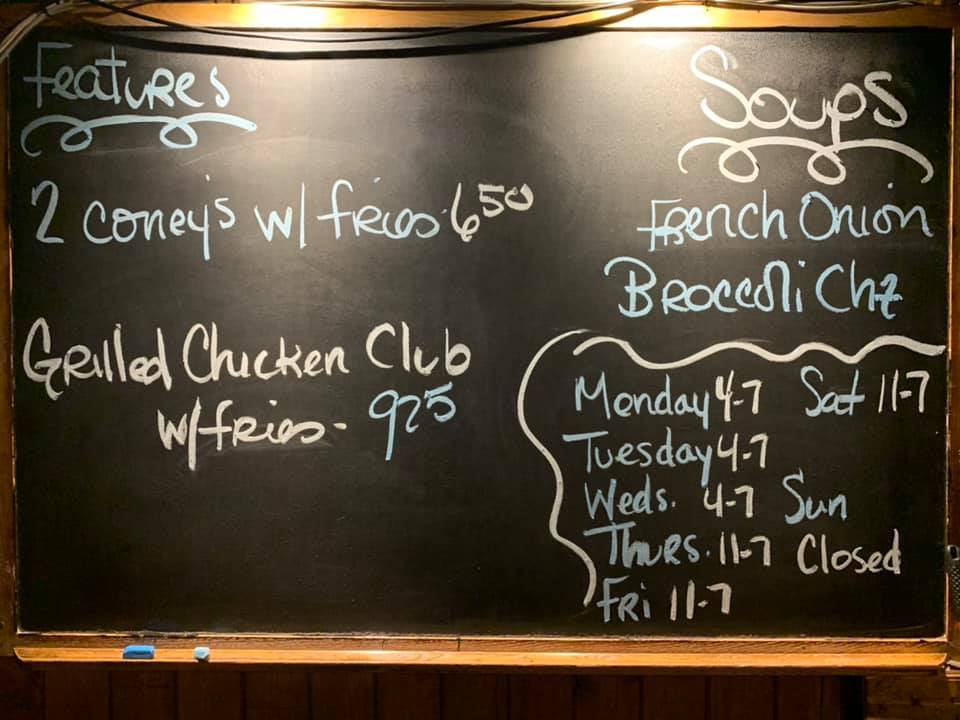 Features
2 coney's w/ fries 6 50
Grilled Chicken Club
w/fries- 925
Soups
French Onion
Broccoli Chz
Monday 4-7
Tuesday 4-7
Weds. 4-7
Thurs. 11-7
Fri 11-7
Sat 11-7
Sun
Closed